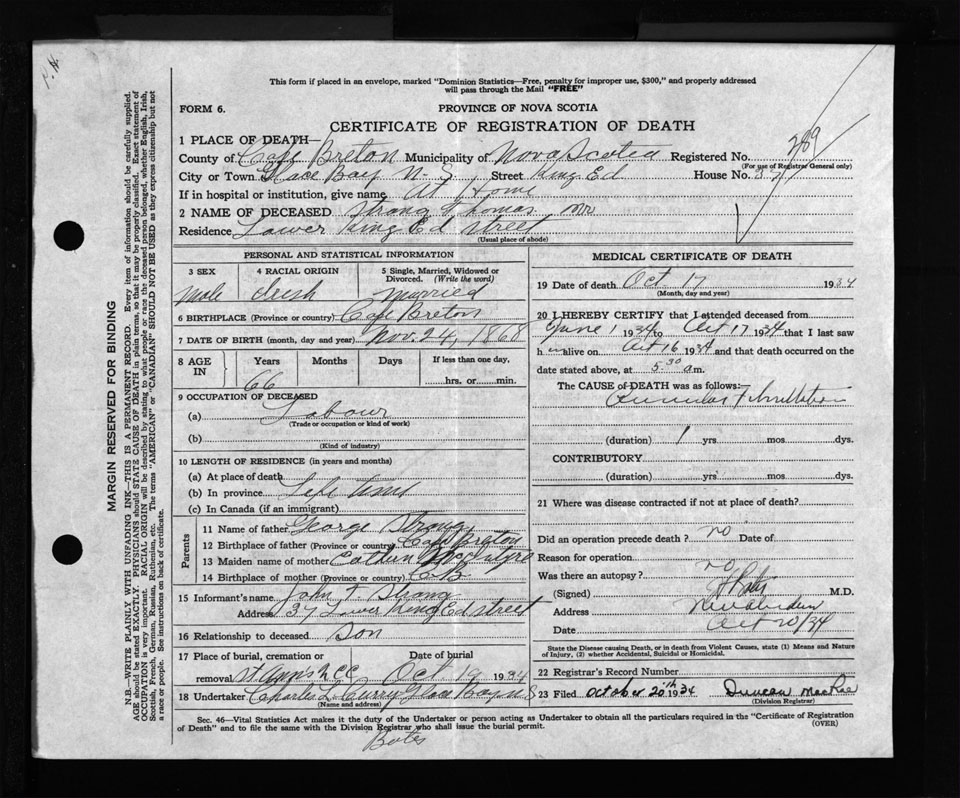 This form if placed in an envelope, marked "Dominion Statistics—Free, penalty for improper use, $300," and properly addressed
will pass through the Mail "FREE"
FORM 6.
PROVINCE OF NOVA SCOTIA
CERTIFICATE OF REGISTRATION OF DEATH
289
1 PLACE OF DEATH—
County of Cape Breton Municipality of Nova Scotia Registered No.
(For use of Registrar General only)
City or Town Glace Bay N. S. Street King Ed House No. 37
If in hospital or institution, give name At Home
2 NAME OF DECEASED Strong Thomas Mr
Residence Lower King Ed Street
(Usual place of abode)
PERSONAL AND STATISTICAL INFORMATION
3 SEX 4 RACIAL ORIGIN 5 Single, Married, Widowed or
Divorced. (Write the word)
Male Irish Married
6 BIRTHPLACE (Province or country) Cape Breton
7 DATE OF BIRTH (month, day and year) Nov. 24, 1868
8 AGE IN Years Months Days If less than one day,
66 hrs. or min.
9 OCCUPATION OF DECEASED
(a) Labour
(Trade or occupation or kind of work)
(b)
(Kind of industry)
10 LENGTH OF RESIDENCE (in years and months)
(a) At place of death
(b) In province Life time
(c) In Canada (if an immigrant)
Parents
11 Name of father George Strong
12 Birthplace of father (Province or country) Cape Breton
13 Maiden name of mother
14 Birthplace of mother (Province or country) C.B
15 Informant's name John T Strong
Address 37 Lower King Ed street
16 Relationship to deceased Son
17 Place of burial, cremation or Date of burial
removal St Ann's Oct 19 1934
18 Undertaker Charles L Curry Glace Bay N S
(Name and address)
MEDICAL CERTIFICATE OF DEATH
19 Date of death Oct 17 1934
(Month, day and year)
20 I HEREBY CERTIFY that I attended deceased from
June 1 1934 to Oct 17 1934 that I last saw
h im alive on Oct 16 1934 and that death occurred on the
date stated above, at 5-30 a m.
The CAUSE of DEATH was as follows:
(duration) 1 yrs. mos. dys.
CONTRIBUTORY
(duration) yrs. mos. dys.
21 Where was disease contracted if not at place of death?
Did an operation precede death? no Date of
Reason for operation
Was there an autopsy? no
(Signed) M.D.
Address New Aberdeen
Date Oct 20/34
State the Disease causing Death, or in death from Violent Causes, state (1) Means and Nature
of Injury, (2) whether Accidental, Suicidal or Homicidal.
22 Registrar's Record Number
23 Filed October 20th 1934 Duncan MacRae
(Division Registrar)
Sec. 46—Vital Statistics Act makes it the duty of the Undertaker or person acting as Undertaker to obtain all the particulars required in the "Certificate of Registration
of Death" and to file the same with the Division Registrar who shall issue the burial permit. (OVER)
Bates
MARGIN RESERVED FOR BINDING
N.B.—WRITE PLAINLY WITH UNFADING INK—THIS IS A PERMANENT RECORD. Every item of information should be carefully supplied.
AGE should be stated EXACTLY. PHYSICIANS should STATE CAUSE OF DEATH in plain terms, so that it may be properly classified. Exact statement of
OCCUPATION is very important. RACIAL ORIGIN will be described by stating to what people or race the deceased person belonged, whether English, Irish,
Scottish, French, German, Russian, Ruthenian, etc. The terms "AMERICAN" or "CANADIAN" SHOULD NOT BE USED as they express citizenship but not
a race or people. See instructions on back of certificate.